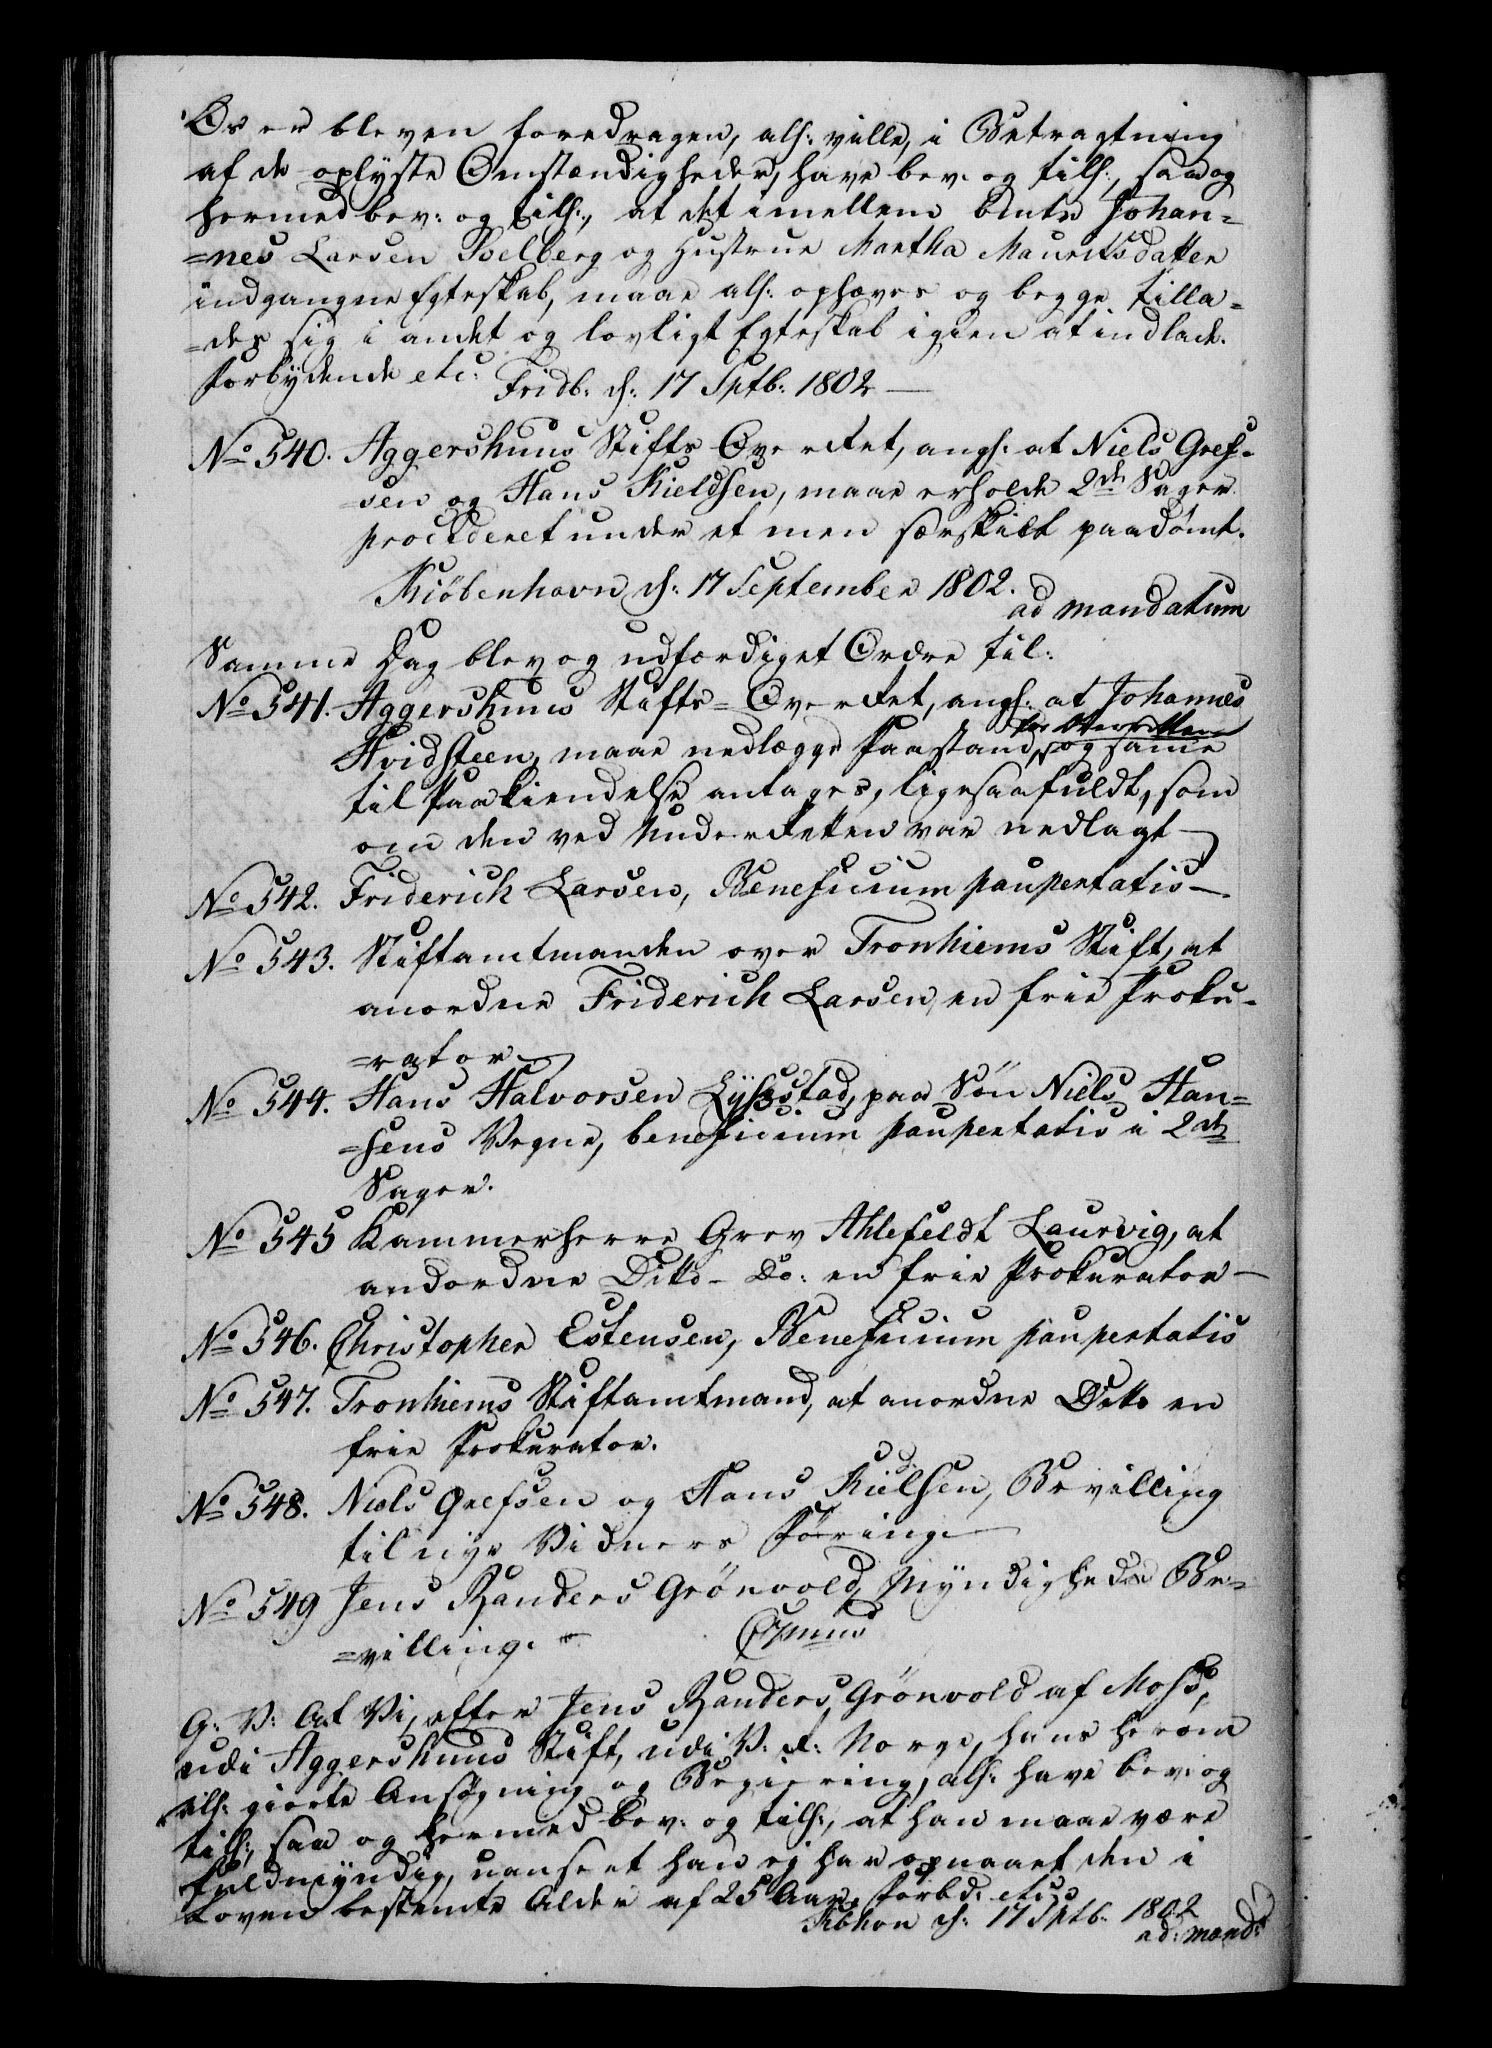 Os er bleven foredragen, als: ville, i Betragtning
af de oplyste Omstændigheder, have bev: og tills:, saa og
hermed bev: og tills:, at det imellem bemte Johan=
=nes Larsen Selberg og Hustrue Martha Mauritsdatter
indgangne Egteskab, maae als: ophæves og begge tilla=
=des sig i andet og lovligt Egteskab igien at indlade.
Forbydende etc: Fridb: d: 17 Sptb: 1802 —
No 540. Aggershuus Stifts Overret, angl: at Niels Gref=
=sen og Hans Kieldsen, maae erholde 2de Sager
procederet under et men særskilt paadømt.
Kiøbenhavn d: 17 September 1802.
ad mandatum
Samme Dag blev og udfærdiget Ordre til:
No 541. Aggershuus Stifts=Overret, angl: at Johannes
for Overretten
Hvidsteen, maae nedlægge Paastand, og samme
til Paakiendelse antages, ligesaafuldt, som
om den ved Underretten var nedlagt —
No 542. Friderich Larsen, Beneficium paupertatis —
No 543. Stiftamtmanden over Tronhiems Stift, at
anordne Friderich Larsen, en frie Proku=
=rator —
No 544. Hans Halvorsen Lysestad, paa Søn Niels Han=
=sens Vegne, beneficium paupertatis i 2de
Sager.
No 545 Kammerherre Grev Ahlefeldt Laurvig, at
andordne Ditto - Do: en frie Prokurator —
No 546. Christopher Estensen, Beneficium paupertatis
No 547. Tronhiems Stiftamtmand, at anordne Ditto en
frie Prokurator.
No 548. Niels Grefsen og Hans Kieldsen, Bevilling
til nye Vidners Føring —
No 549 Jens Randers Grönvold, Myndigheds Be=
=villing. —
G: V: At Vi, efter Jens Randers Grönvold af Moss,
udi Aggershuus Stift, udi V: R: Norge, hans herom
als: giorte Ansøgning og Begiering, als: have bev: og
tills:, saa og hermed bev: og tills:, at han maae være
fuldmyndig, uanseet han ej har opnaaet den i
Loven bestemte Alder af 25 Aar, Forbd: etc:
Kbhvn d: 17 Sptb: 1802
ad: mand: